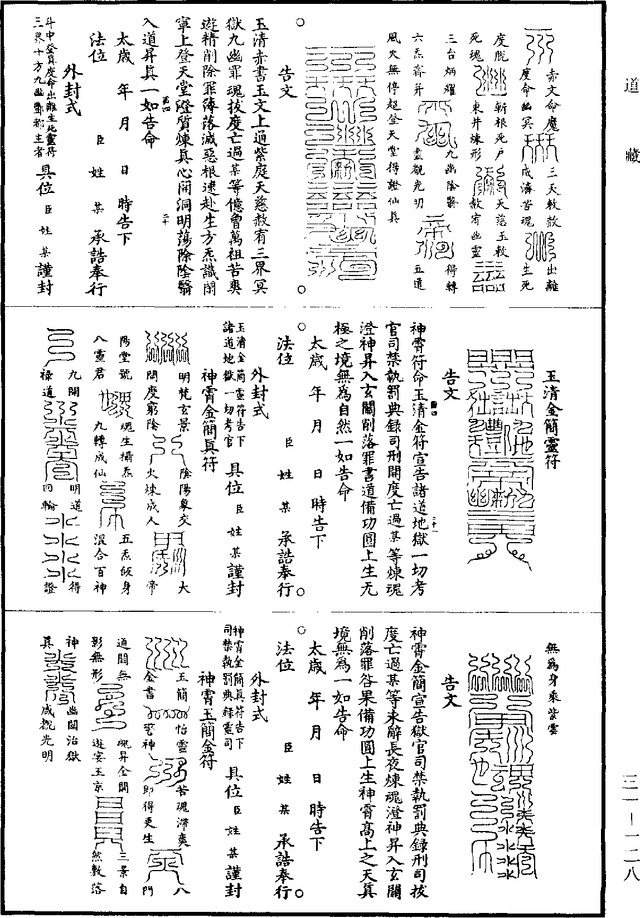 道藏
赤文命魔
度命幽冥
三天敕赦
出離
度脫
斬根死戶
成濤苦魂
生死
死魂
東井煉形
天慈玉敕
赦宥幽靈
三台炳耀
九幽陰翳
得轉
六炁齊并
盡覩光明
五道
風火無停超登天堂得證仙真
告文
玉清赤書玉文上通紫庭天慈赦宥三界冥
獄九幽罪魂拔度亡過某等億曾萬祖苦爽
遊精削除罪簿落滅惡根速赴生方炁識開
寧上登天堂澄質煉真心開洞明蕩除陰翳
入道昇真一如告命
太歲 年 月 日 時告下
法位 臣 姓 某 承誥奉行
外封式
斗中登真度命出離生死靈符
三界十方九幽酆都主者 具位 臣 姓 某 謹封
玉清金簡靈符
告文
神霄符命玉清金符宣告諸道地獄一切考
官司禁執罰典錄司刑開度亡過某等煉魂
澄神昇入玄闕削落罪書道備功圓上生无
極之境無爲自然一如告命
太歲 年 月 日 時告下
法位 臣 姓 某 承誥奉行
外封式
玉清金簡靈符告下
諸道地獄一切考官 具位 臣 姓 某 謹封
神霄金簡真符
明梵玄景
陰陽象交
大
開度窮陰
火煉成人
帝
陽堂號
魂生攝炁
五炁皈身
八靈君
九轉成仙
混合百神
九開
明道
得
祿道
回輪
證
無爲身乘紫雲
告文
神霄金簡宣告獄官司禁執罰典錄刑司拔
度亡過某等永辭長夜煉魂澄神昇入玄關
削落罪咎果備功圓上生神霄高上之天真
境無爲一如告命
太歲 年 月 日 時告下
法位 臣 姓 某 承誥奉行
外封式
神霄金簡真符告下
司禁執罰典錄靈司 具位 臣 姓 某 謹封
神霄玉簡金符
玉簡
怡靈
苦魂滯爽
八
金書
寂神
即得更生
門
道開無
魂昇金闕
三景自
影無形
遊宴玉京
然敷落
神
幽關治獄
真
咸覩光明
三一—一二八